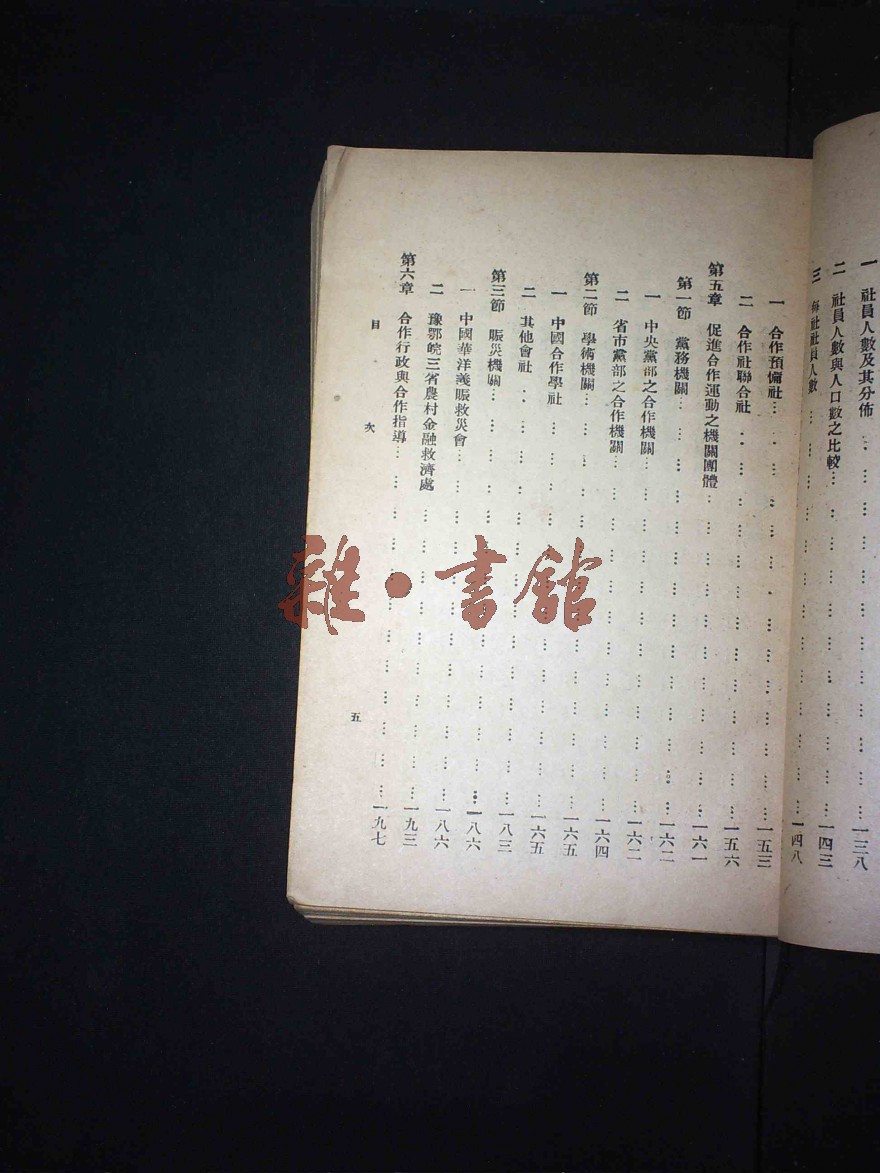 一 社員人數及其分佈……一三八
二 社員人數與人口數之比較……一四三
三 每社社員人數……一四八
一 合作預備社……一五三
二 合作社聯合社……一五六
第五章 促進合作運動之機關團體……一六一
第一節 黨務機關……一六二
一 中央黨部之合作機關……一六二
二 省市黨部之合作機關……一六四
第二節 學術機關……一六五
一 中國合作學社……一六五
二 其他會社……一八三
第三節 賑災機關……一八六
一 中國華洋義賑救災會……一八六
二 豫鄂皖三省農村金融救濟處……一九三
第六章 合作行政與合作指導……一九七
目 次
五
雜·書館